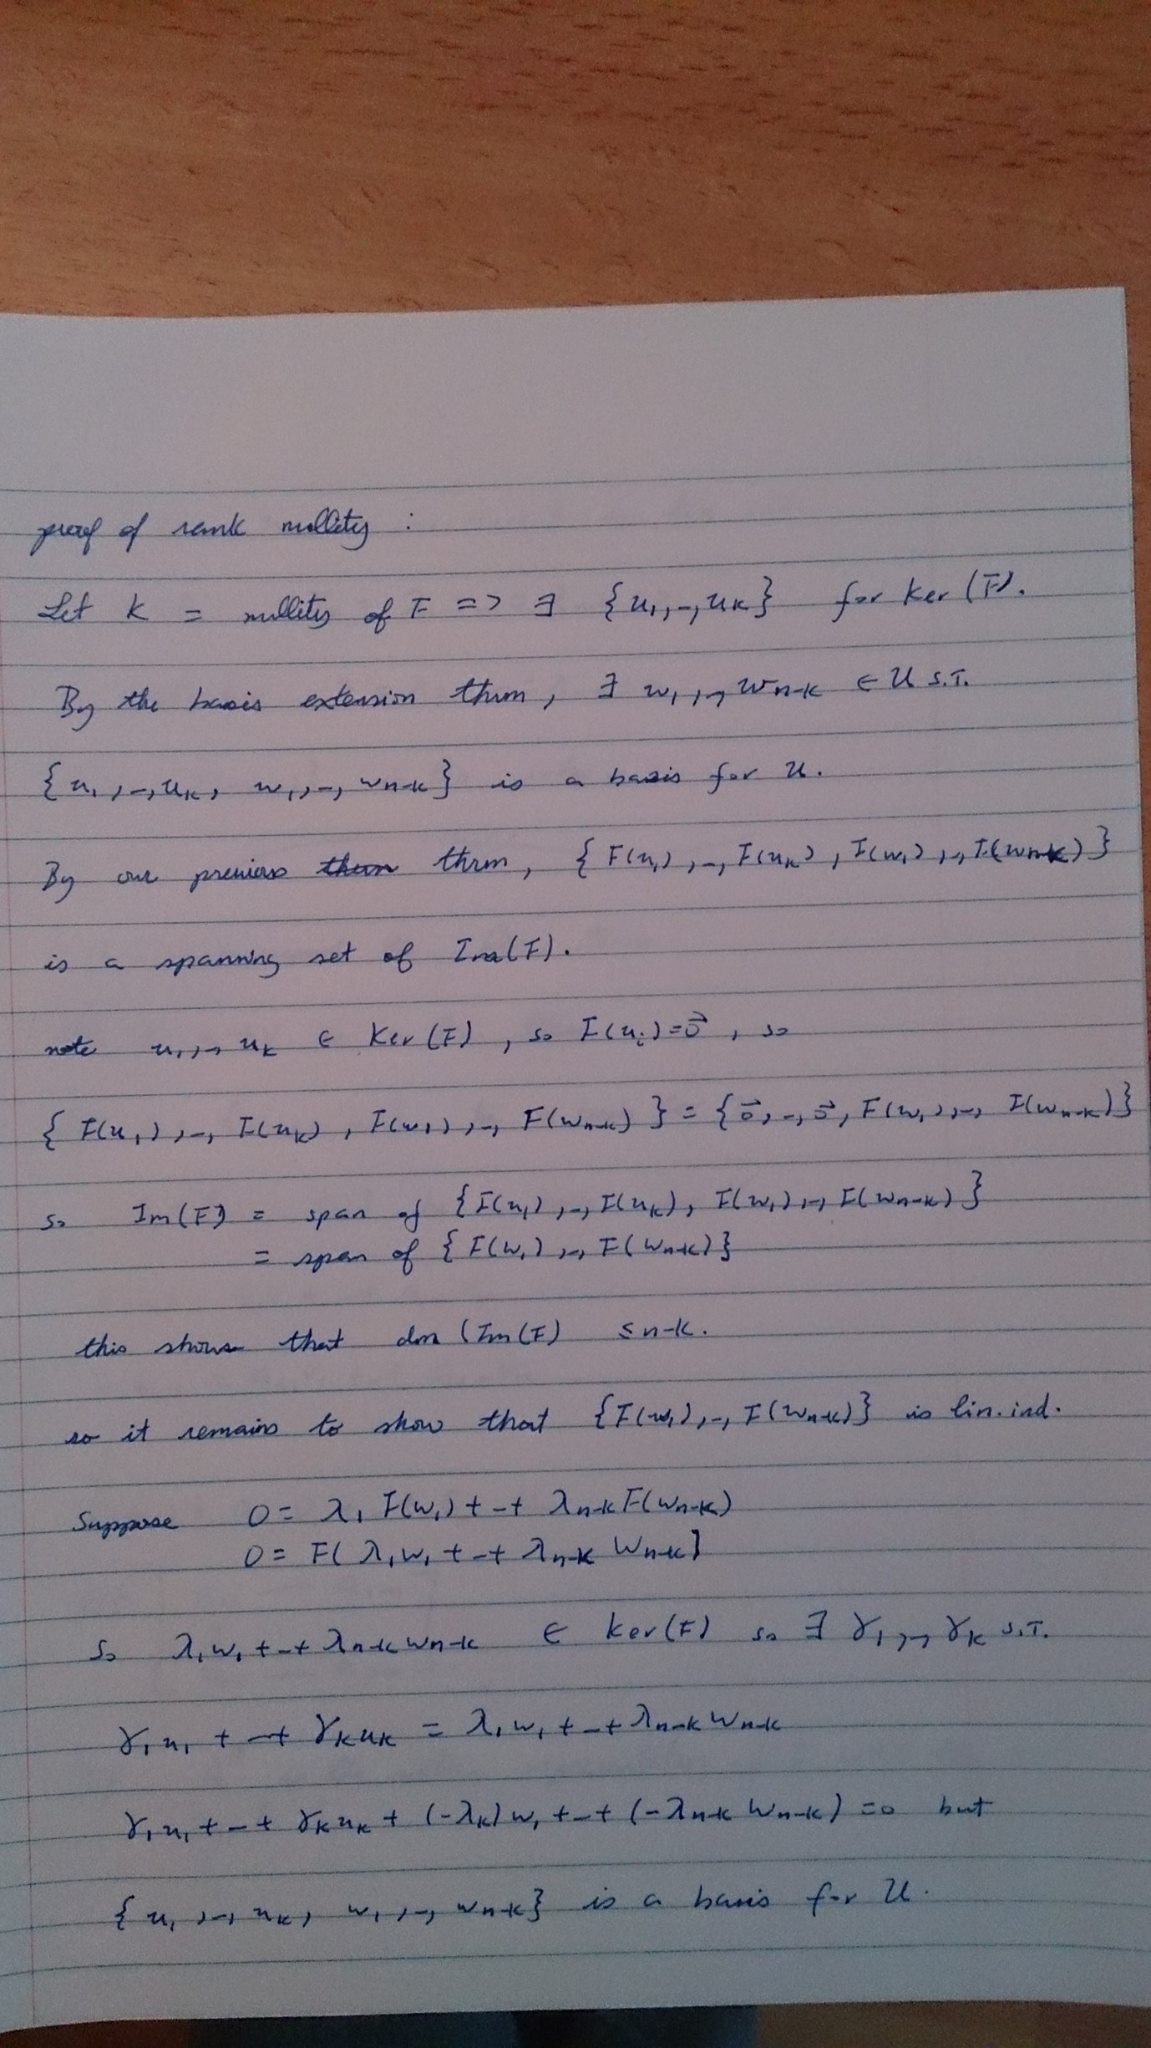 proof of rank nullity :
Let K = nullity of F => ∃ {u₁,-,uₖ} for Ker (F).
By the basis extension thm, ∃ w₁,-,wₙ₋ₖ ∈ U s.t.
{u₁,-,uₖ, w₁,-,wₙ₋ₖ} is a basis for U.
By our previous thm, {F(u₁),-,F(uₖ),F(w₁),-,F(wₙ₋ₖ)}
is a spanning set of Im(F).
note u₁,-,uₖ ∈ Ker(F), so F(uᵢ)=0⃗, so
{F(u₁),-,F(uₖ),F(w₁),-,F(wₙ₋ₖ)} = {0⃗,-,0⃗,F(w₁),-,F(wₙ₋ₖ)}
so Im(F) = span of {F(u₁),-,F(uₖ),F(w₁),-,F(wₙ₋ₖ)}
= span of {F(w₁),-,F(wₙ₋ₖ)}
this shows that dim (Im(F) ≤ n-k.
so it remains to show that {F(w₁),-,F(wₙ₋ₖ)} is lin.ind.
Suppose 0 = λ₁F(w₁)+-+ λₙ₋ₖF(wₙ₋ₖ)
0 = F(λ₁w₁+-+ λₙ₋ₖwₙ₋ₖ)
So λ₁w₁+-+λₙ₋ₖwₙ₋ₖ ∈ Ker(F) so ∃ γ₁,-,γₖ s.t.
γ₁u₁+-+γₖuₖ = λ₁w₁+-+λₙ₋ₖwₙ₋ₖ
γ₁u₁+-+γₖuₖ+(-λₖ)w₁+-+(-λₙ₋ₖwₙ₋ₖ)=0 but
{u₁,-,uₖ, w₁,-,wₙ₋ₖ} is a basis for U.